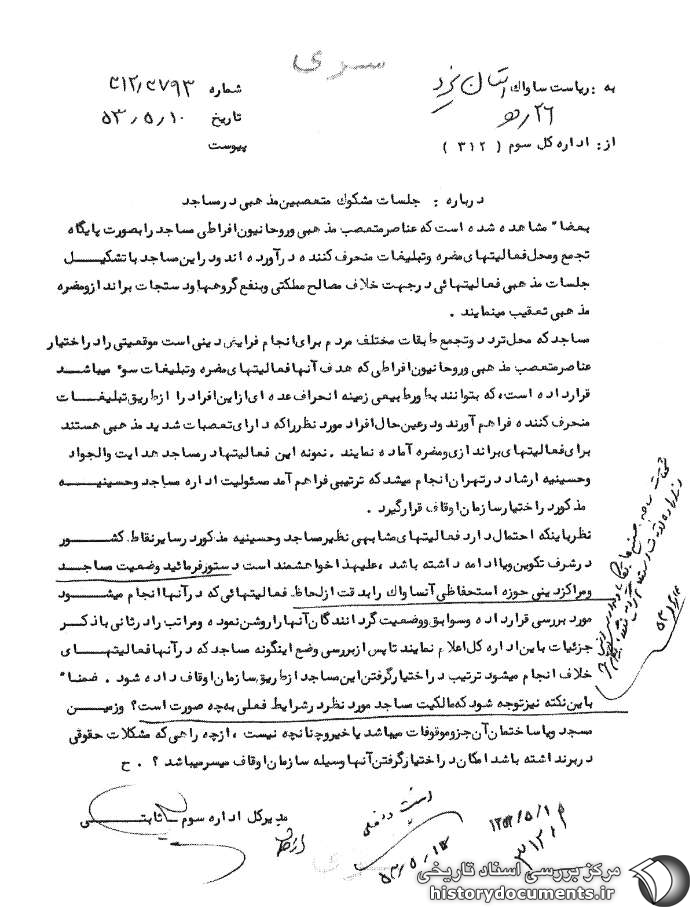 سری
به : ریاست ساواک استان یزد
شماره ۳۱۲/۳۷۹۳
۲۶/ره
تاریخ ۵۳/۵/۱۰
از : اداره کل سوم ( ۳۱۲ )
پیوست
درباره : جلسات مشکوک متعصبین مذهبی در مساجد
بعضا" مشاهده شده است که عناصر متعصب مذهبی وروحانیون افراطی مساجد را بصورت پایگاه
تجمع ومحل فعالیتهای مضره وتبلیغات منحرف کننده درآورده اند ودراین مساجد با تشکیل
جلسات مذهبی فعالیتهائی درجهت خلاف مصالح مملکتی وبنفع گروهها ودستجات براندازومضره
مذهبی تعقیب مینمایند .
مساجد که محل تردد وتجمع طبقات مختلف مردم برای انجام فرایض دینی است موقعیتی رادراختیار
عناصر متعصب مذهبی وروحانیون افراطی که هدف آنها فعالیتهای مضره وتبلیغات سوء میباشد
قرارداده است، که بتوانند بطورطبیعی زمینه انحراف عده ای ازاین افراد را ازطریق تبلیغات
منحرف کننده فراهم آورند ودرعین حال افراد مورد نظرراکه دارای تعصبات شدید مذهبی هستند
برای فعالیتهای براندازی ومضره آماده نمایند . نمونه این فعالیتهادرمساجد هدایت والجواد
وحسینیه ارشاد درتهران انجام میشد که ترتیبی فراهم آمد مسئولیت اداره مساجد وحسینیه
مذکوردراختیارسازمان اوقاف قرارگیرد .
نظرباینکه احتمال دارد فعالیتهای مشابهی نظیرمساجد وحسینیه مذکوردرسایرنقاط کشور
درشرف تکوین ویا ادامه داشته باشد ، علیهذا خواهشمند است دستورفرمائید وضعیت مساجد
ومراکزدینی حوزه استحفاظی آنساواک رابدقت ازلحاظ فعالیتهائی که درآنها انجام میشود
مورد بررسی قرارداده وسوابق ووضعیت گردانندگان آنها راروشن نموده ومراتب رادرثانی باذکر
جزئیات باین اداره کل اعلام نمایند تاپس ازبررسی وضع اینگونه مساجد که درآنها فعالیتهای
خلاف انجام میشود ترتیب دراختیارگرفتن این مساجد ازطریق سازمان اوقاف داده شود . ضمنا"
باین نکته نیزتوجه شود که مالکیت مساجد مورد نظردرشرایط فعلی به چه صورت است؟ وزمین
مسجد ویاساختمان آن جزو موقوفات میباشد یاخیروچنانچه نیست ، ازچه راهی که مشکلات حقوقی
دربرنداشته باشد امکان دراختیارگرفتن آنها وسیله سازمان اوقاف میسرمیباشد ؟ . ح
مدیرکل اداره سوم - ثابتی
۱۳۵۳/۵/۱
۳۱۲
۵۳/۵/۱۴
سری
مرکز بررسی اسناد تاریخی
historydocuments.ir